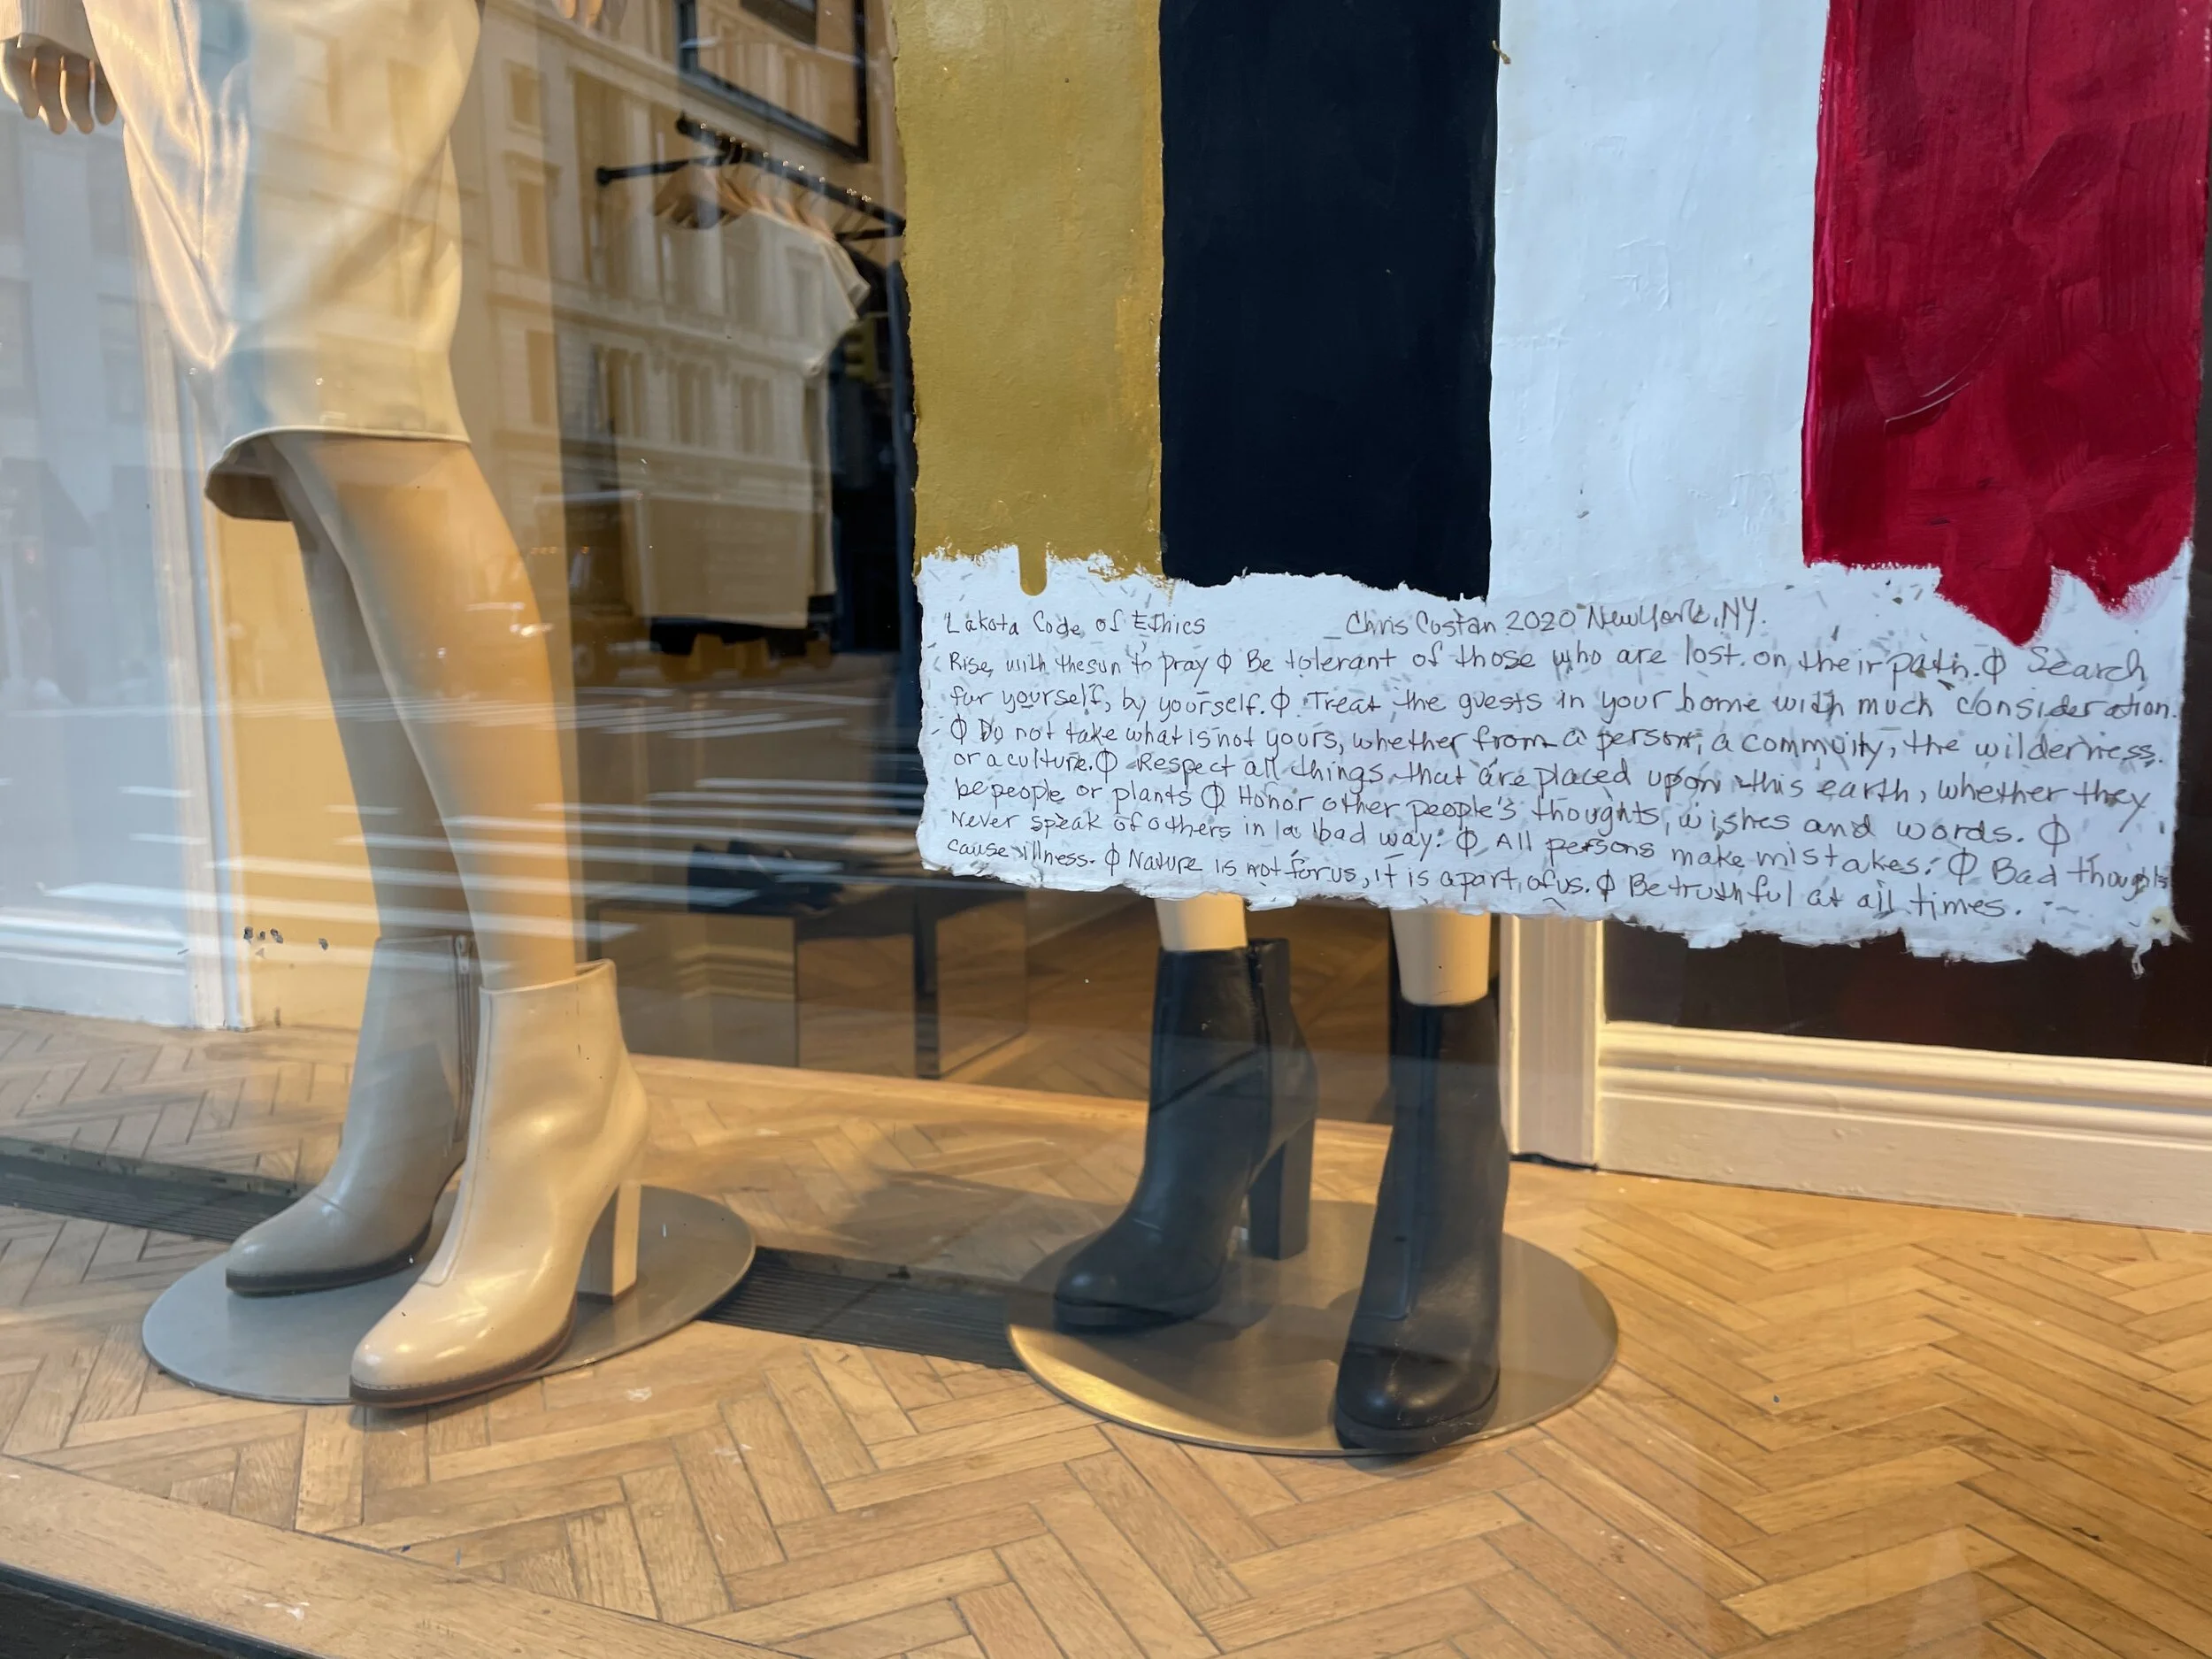 Lakota Code of Ethics Chris Custan 2020 New York, NY.
Rise, with the sun to pray Φ Be tolerant of those who are lost on their path. Φ Search
for yourself, by yourself. Φ Treat the guests in your home with much consideration.
Φ Do not take what is not yours, whether from a person, a commuity, the wilderness
or a culture. Φ Respect all things that are placed upon this earth, whether they
be people or plants Φ Honor other people's thoughts, wishes and words. Φ
Never speak of others in a bad way. Φ All persons make mistakes. Φ Bad thoughts
cause illness. Φ Nature is not for us, it is a part of us. Φ Be truthful at all times.